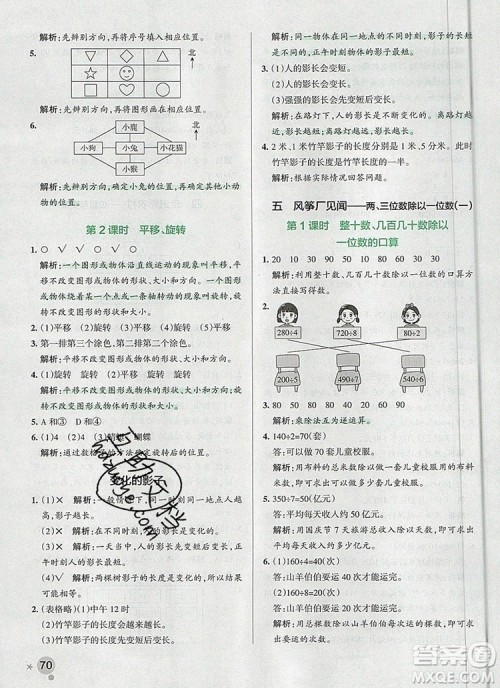 解析:先辩方向,再将序号填入相应的位置。
5.
北
解析:先辨别方向,再将图形画在相应位置。
6.
小鹿
北
小狗
小兔
小花猫
小猴
解析:先辨别方向,再确定小兔的方向及其他小动物的位置。
第2课时 平移、旋转
1. ○ ✓ ○ ✓ ○ ✓
解析:一个图形或物体沿直线运动的现象叫平移,平移不改变图形或物体的形状、大小。一个图形或物体绕着一个点或轴运动的现象叫旋转,旋转不改变图形或物体的形状、大小。
2. (1)平移 (2)旋转 (3)平移 (4)旋转
3. 第一排第三个涂色,第二排第二个涂色。
解析:平移不改变图形或物体的形状、大小和方向。
4. (1)旋转 (2)平移 (3)平移 (4)旋转
解析:平移不改变图形或物体的形状、大小和方向。
5. A:③和① D:②和④
6. (1)4 (2)4 (3)蜻蜓 蝴蝶
解析:通过数格子的方法确定平移后的位置。
变化的影子
1. (1)× 解析:一天中,同一时间、同一地点,人越高影子越长。
(2)× 解析:在不同时刻,树的影子是变化的。
(3)× 解析:一天当中,影子的变化情况是由长变短,再由短变长。
(4)✓ 解析:两棵树影子的长度是变化的。
2. (表格略)(1)中午12时
(2)竹竿影子的长度会越来越短。
(3)竹竿影子的长度会先变短后变长。
70
解析:同一天同一地点的不同时刻影子的长度是不同的,正午时刻物体的影子最短。
3. (1)人的影长会变短。
(2)人的影长会变长。
(3)强强的影长会先变短后变长。
解析:在路灯下,人的影长是不断变化的。离路灯越远,影长越长。离路灯越近,影长越短。
4. 2米、1米竹竿影子的长度分别是同一时刻3米长的竹竿影子的长度。
解析:根据实际情况回答问题。
五 风筝厂见闻——两、三位数除以一位数(一)
第1课时 整十数、几百几十数除以一位数的口算
1. 20 10 30 90 80 70 50 30
解析:利用整十、几百几十数除以一位数的口算方法直接写得数。
2.
280÷4
720÷8
80÷2
200÷5
490÷7
540÷6
3.
解析:乘除法互为逆运算。
4. 140÷2=70(套)
答:可以做70套儿童校服。
解析:用布料总米数除以一套儿童校服用的布料米数,即可求出可以做多少套儿童校服。
5. 350÷7=50(亿元)
答:平均每天大约50亿元。
解析:用国庆节7天旅游总收入除以天数,即可求出平均每天大约收入多少亿元。
6. (1)160÷4=40(次)
答:山羊伯伯要运40次才能运完。
(2)160÷8=20(次)
答:山羊伯伯要运20次才能运完。
解析:用总棵数除以山羊伯伯每次运的棵数,即可求出次数。
五三助手文档
hazuowenge
答案圈
MXQE.COM